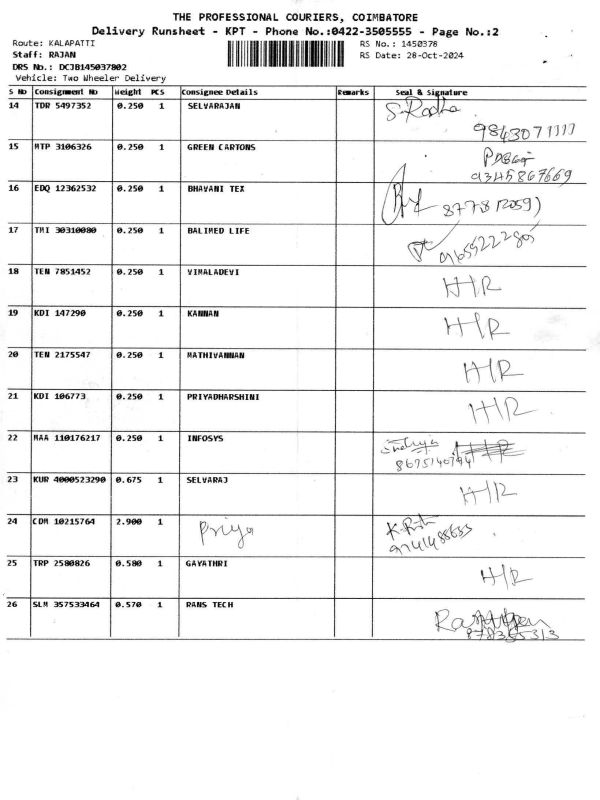 THE PROFESSIONAL COURIERS, COIMBATORE
Delivery Runsheet - KPT - Phone No.:0422-3505555 - Page No.:2
Route: KALAPATTI RS No.: 1450378
Staff: RAJAN RS Date: 28-Oct-2024
DRS No.: DCJB145037802
Vehicle: Two Wheeler Delivery
S No Consignment No Weight PCS Consignee Details Remarks Seal & Signature
14 TDR 5497352 0.250 1 SELVARAJAN S. Radha
9843071111
15 MTP 3106326 0.250 1 GREEN CARTONS
9345867669
16 EDQ 12362532 0.250 1 BHAVANI TEX
17 TMI 30310080 0.250 1 BALIMED LIFE
18 TEN 7851452 0.250 1 VIMALADEVI H/R
19 KDI 147290 0.250 1 KANNAN H/R
20 TEN 2175547 0.250 1 MATHIVANNAN H/R
21 KDI 106773 0.250 1 PRIYADHARSHINI H/R
22 MAA 110176217 0.250 1 INFOSYS H/R
8675140794
23 KUR 4000523290 0.675 1 SELVARAJ H/R
24 CDM 10215764 2.900 1 Priya
25 TRP 2580826 0.580 1 GAYATHRI H/R
26 SLM 357533464 0.570 1 RANS TECH